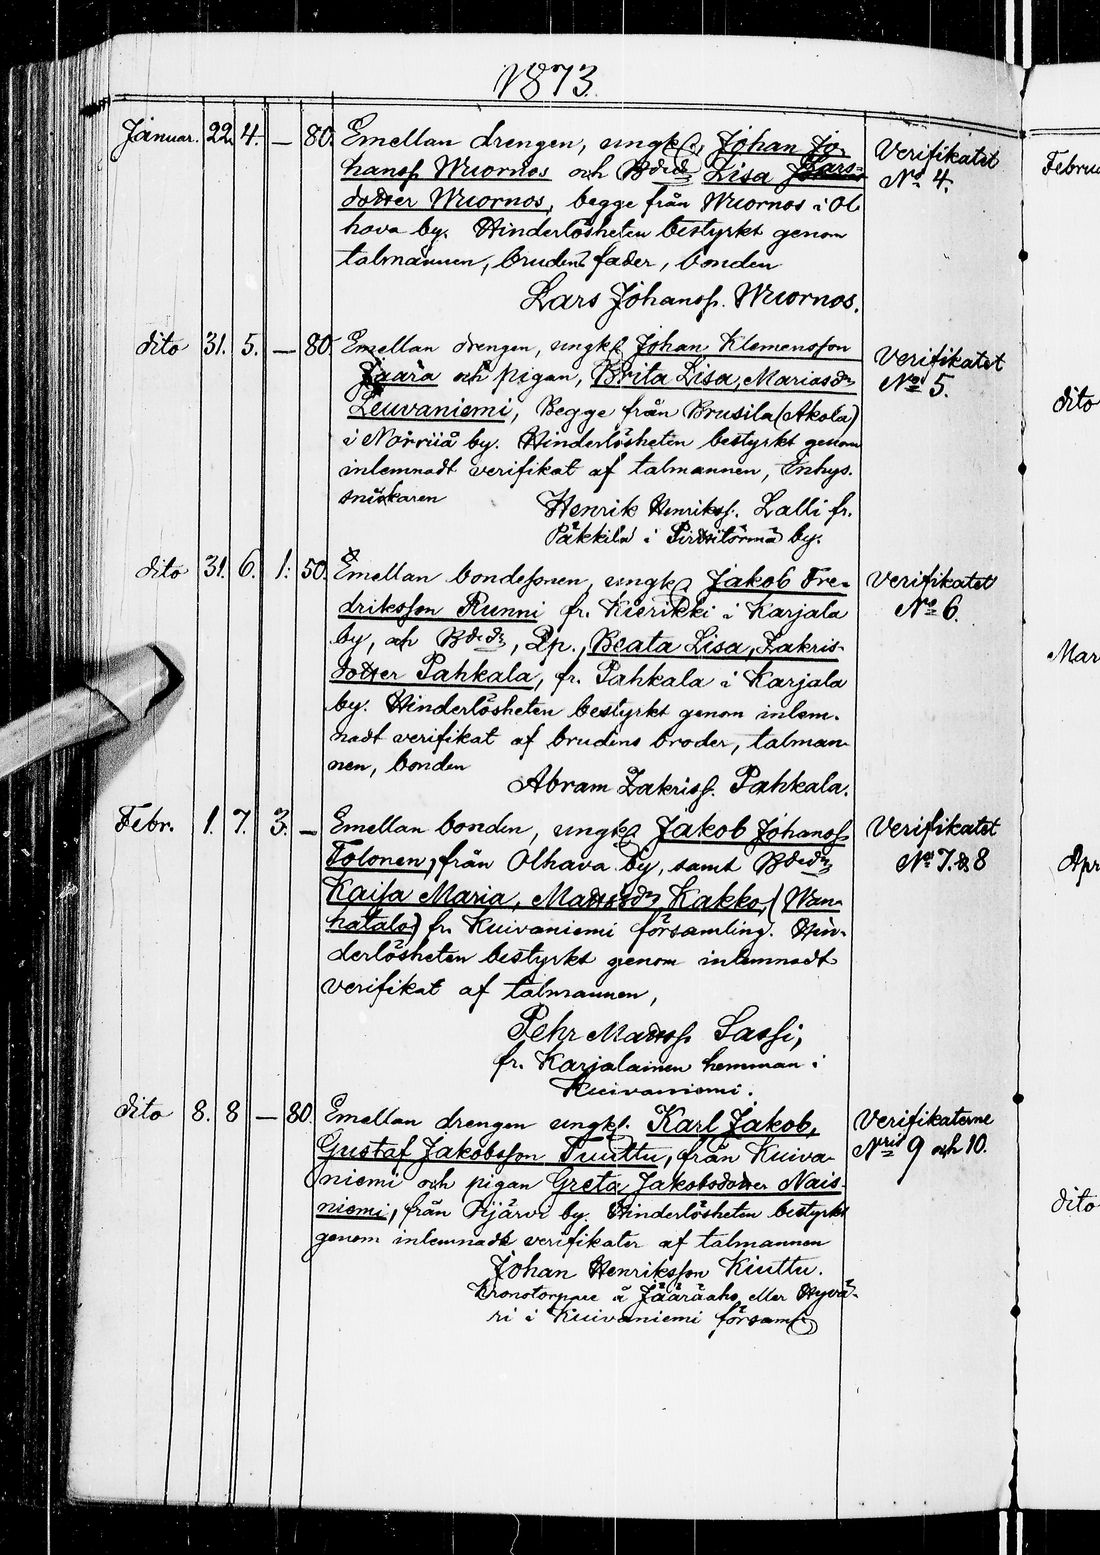 1873.
Januar. 22. 4. — 80. Emellan drengen, ungk. Johan Jo- Verifikatet
hanss. Wuornos och Bdedr Lisa Lars- No 4.
dotter Wuornos, begge från Wuornos i Ol
hava by. Hinderlösheten bestyrkt genom
talmannen, brudens fader, bonden
Lars Johanss. Wuornos.
dito 31. 5. — 80. Emellan drengen, ungk. Johan Klemensson Verifikatet
Jaara och pigan, Brita Lisa, Mariasdr No 5.
Leuvaniemi, Begge från Brusila (Akola)
i by. Hinderlösheten bestyrkt genom
inlemnadt verifikat af talmannen, Enhys.
snickaren Henrik Henrikss. Lalli fr.
Päkkilä i by.
dito 31. 6. 1. 50. Emellan bondesonen, ungk. Jakob Fre- Verifikatet
driksson Runni fr. Kierikki i Karjala No 6.
by, och Bdedr, Pp., Beata Lisa, Zakris-
dotter Pahkala, fr. Pahkala i Karjala
by. Hinderlösheten bestyrkt genom inlem-
nadt verifikat af brudens broder, talman-
nen, bonden
Abram Zakriss. Pahkala.
Febr. 1. 7. 3. — Emellan bonden, ungk. Jakob Johanss. Verifikatet
Tolonen, från Olhava by, samt Bdedr No 7. & 8
Kaisa Maria, Mattsdr, Kakko, (Wan-
hatalo) fr. Kuivaniemi församling. Hin-
derlösheten bestyrkt genom inlemnadt
verifikat af talmannen,
Pehr Matss. Sassi,
fr. Karjalainen hemman i
Kuivaniemi.
dito 8. 8 — 80. Emellan drengen ungk. Karl Jakob, Verifikaterne
Gustaf Jakobsson Tuuttu, från Kuiva- Nris 9 och 10.
niemi och pigan Greta Jakobsdotter Nais-
niemi, från Ojärvi by. Hinderlösheten bestyrkt
genom inlemnadt verifikater af talmannen
Johan Henriksson Kiuttu.
Kronotorpare å Jääräaho eller Hyvä-
ri i Kuivaniemi församl.
Februa
dito
Mar
Apr
dito